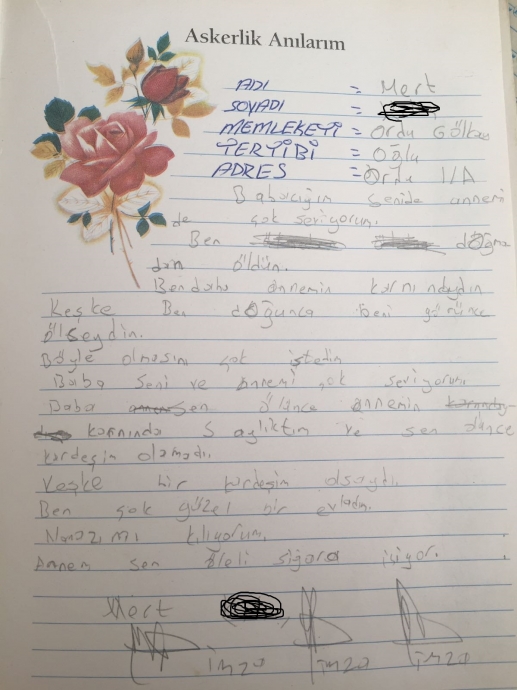 Askerlik Anılarım
ADI = Mert
SOYADI =
MEMLEKETİ = Ordu Gölköy
TERTİBİ = Oğlu
ADRES = Ordu 1/A
Babacığım Senide annemi
de çok seviyorum.
Ben doğma
dan öldün.
Bendaha annemin karnındaydın
Keşke Ben doğunca beni görünce
ölseydin.
Böyle olmasını çok istedim
Baba seni ve annemi çok seviyorum
Baba sen ölünce annemin
karnında 5 aylıktım ve sen ölünce
kardeşim olamadı.
Keşke bir kardeşim olsaydı.
Ben çok güzel bir evladım.
Namazımı kılıyorum.
Annem sen öleli sigara içiyor.
Mert
imza imza imza